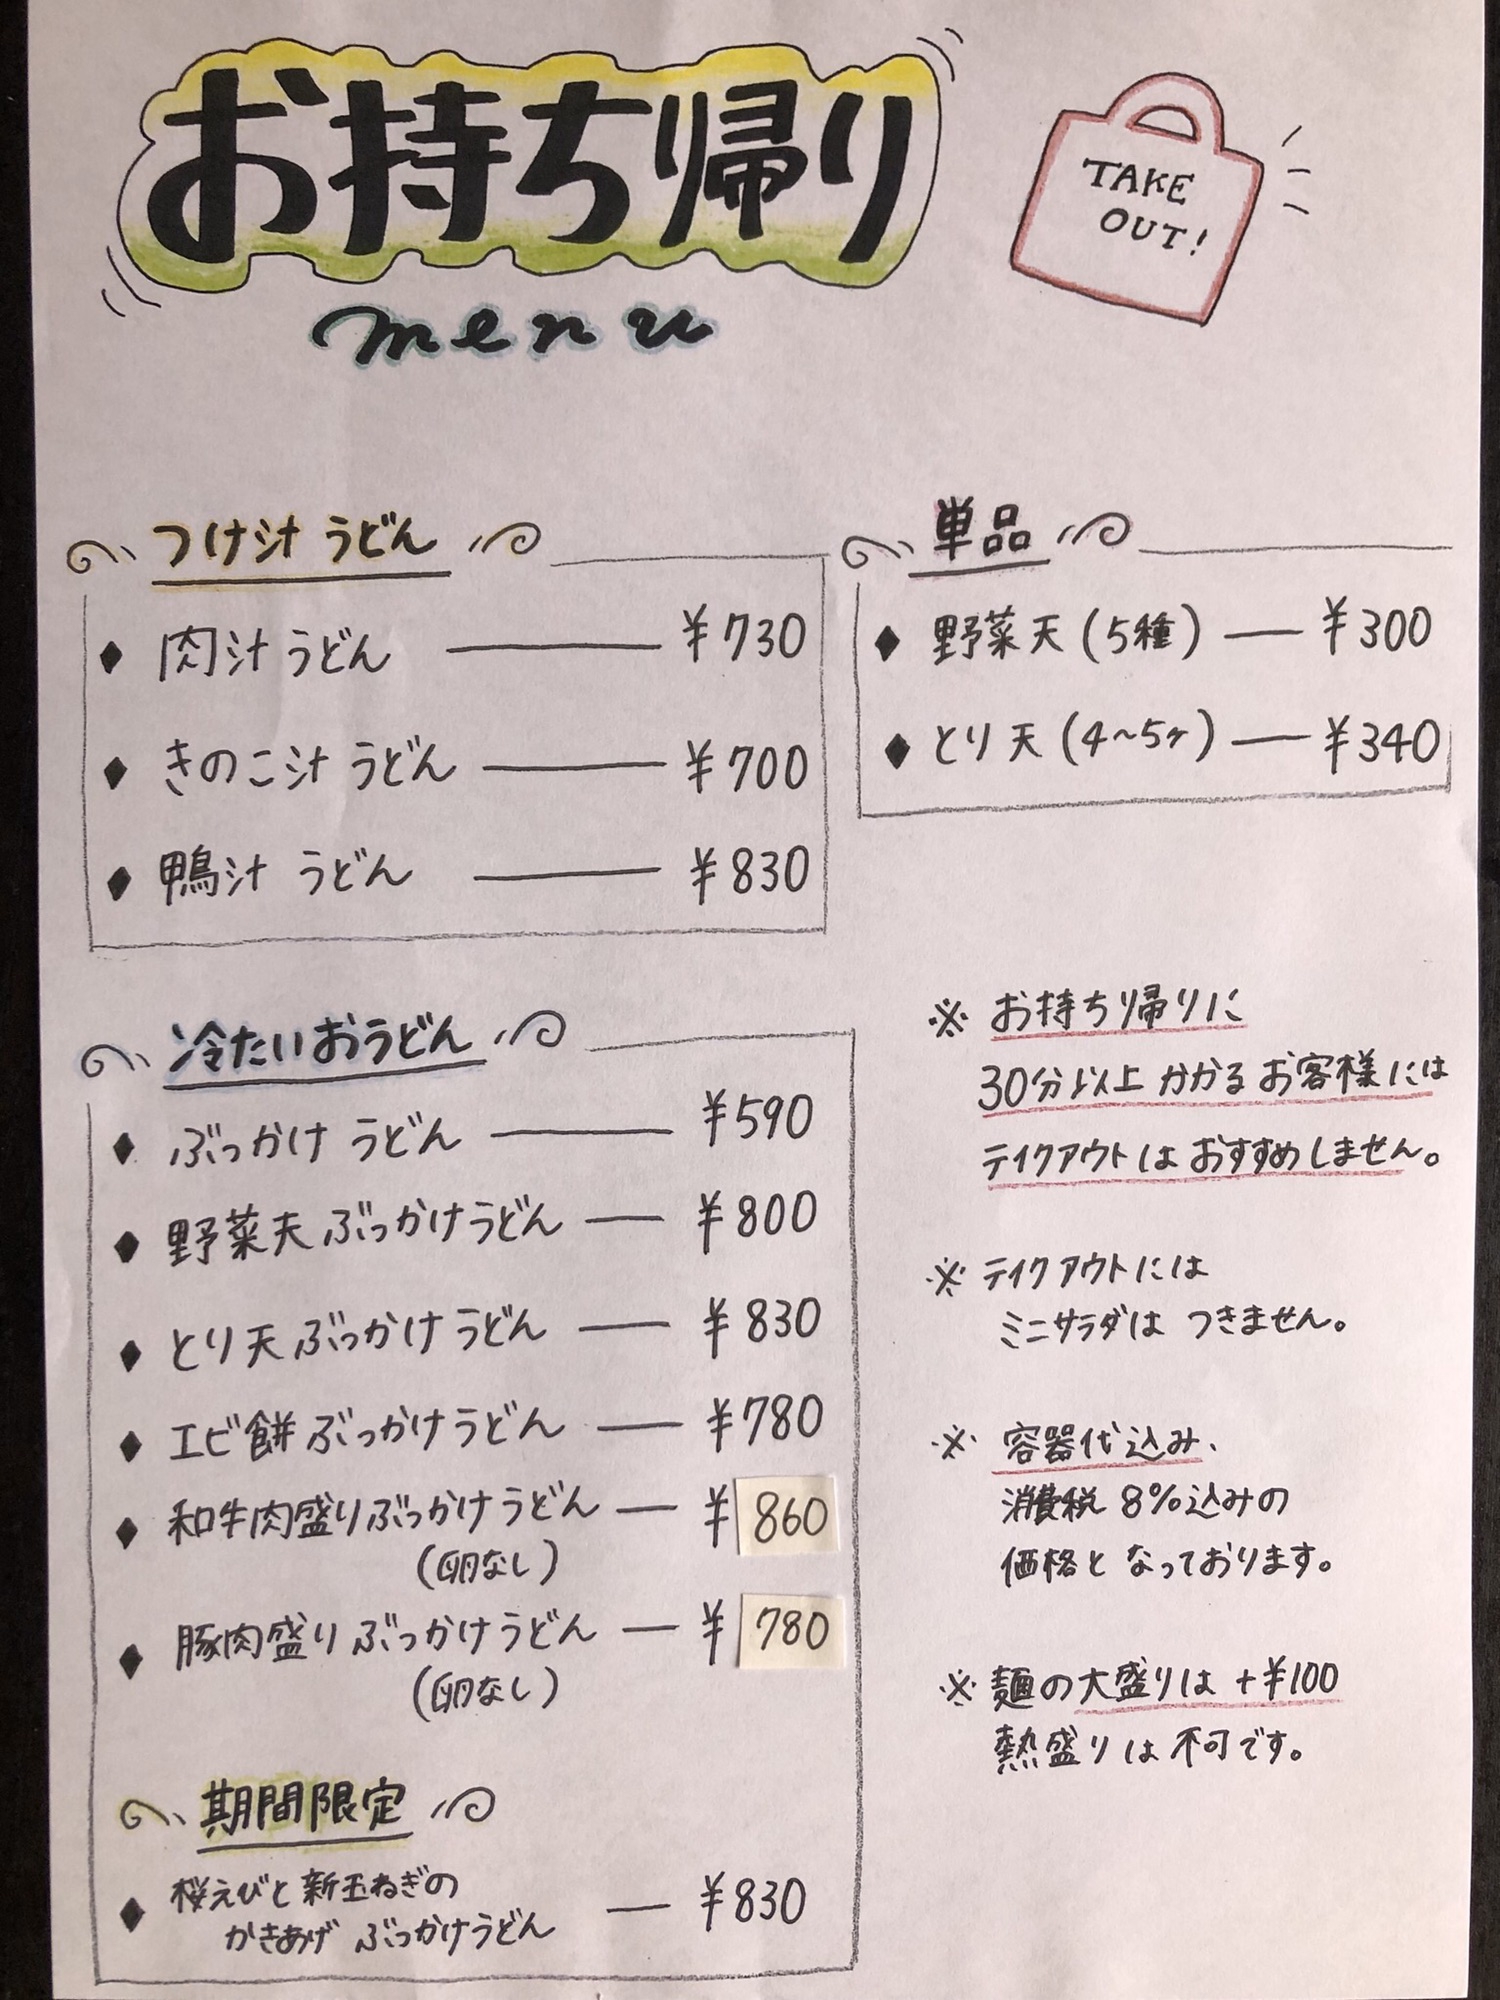 お持ち帰り
menu
TAKE
OUT!
つけ汁 うどん
◆ 肉汁 うどん ― ¥730
◆ きのこ汁 うどん ― ¥700
◆ 鴨汁 うどん ― ¥830
単品
◆ 野菜天(5種) ― ¥300
◆ とり天(4〜5ヶ) ― ¥340
冷たいおうどん
◆ ぶっかけ うどん ― ¥590
◆ 野菜天ぶっかけうどん ― ¥800
◆ とり天ぶっかけうどん ― ¥830
◆ エビ餅ぶっかけうどん ― ¥780
◆ 和牛肉盛りぶっかけうどん ― ¥860
(卵なし)
◆ 豚肉盛りぶっかけうどん ― ¥780
(卵なし)
期間限定
◆ 桜えびと新玉ねぎの
かきあげ ぶっかけうどん ― ¥830
※ お持ち帰りに
30分以上かかるお客様には
テイクアウトはおすすめしません。
※ テイクアウトには
ミニサラダは つきません。
※ 容器代込み、
消費税8%込みの
価格となっております。
※ 麺の大盛りは+¥100
熱盛りは不可です。